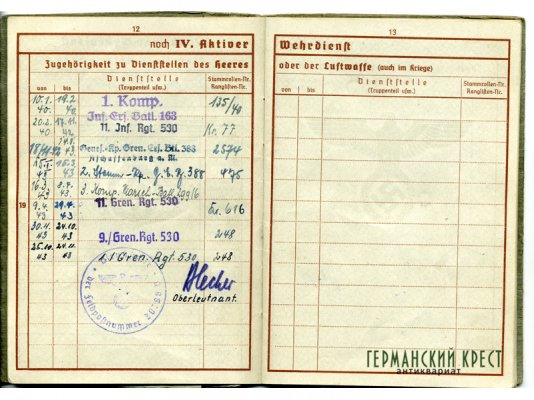 12
noch IV. Aktiver
Zugehörigkeit zu Dienststellen des Heeres
von bis Dienststelle (Truppenteil usw.) Stammrollen-Nr. Ranglisten-Nr.
10.1. 40. 19.2. 40. 1. Komp. Inf. Ers. Batl. 163 135/40
20.2. 40 17.11. 42. 11. Inf. Rgt. 530 Nr. 77
43 Genes.-Kp. Gren. Ers. Btl. 388 2574
Aschaffenburg a. M.
43 15.3. 43 2. Stamm-Kp. 388 475
16.3. 43 43 3. Komp. Marsch-Batl.
19 9.4. 43 43 11. Gren. Rgt. 530 616
30.4. 43 24.10. 43 9./Gren. Rgt. 530 248
25.10. 43 24.11. 43 11./Gren. Rgt. 530 248
der Feldpostnummer
Oberleutnant.
13
Wehrdienst
oder der Luftwaffe (auch im Kriege)
von bis Dienststelle (Truppenteil usw.) Stammrollen-Nr. Ranglisten-Nr.
ГЕРМАНСКИЙ КРЕСТ
антиквариат